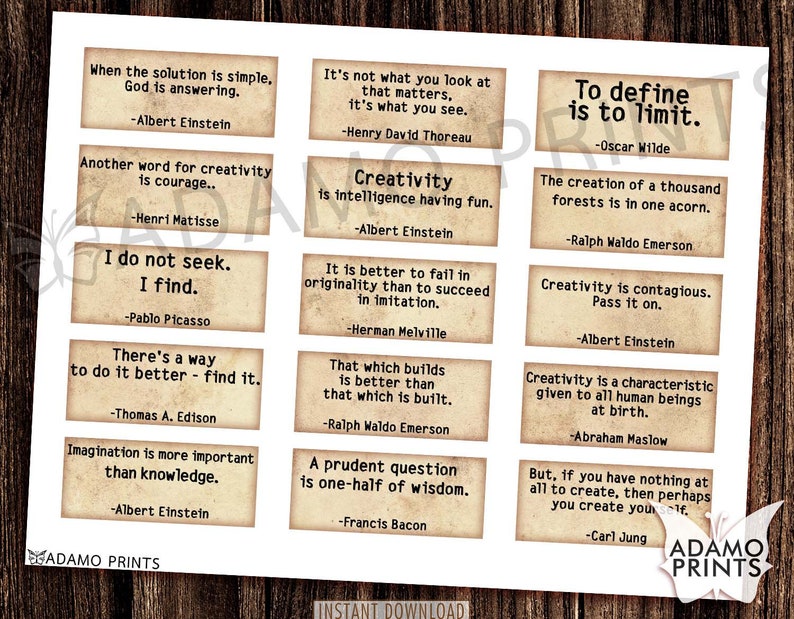 When the solution is simple,
God is answering.
-Albert Einstein
It's not what you look at
that matters,
it's what you see.
-Henry David Thoreau
To define
is to limit.
-Oscar Wilde
Another word for creativity
is courage..
-Henri Matisse
Creativity
is intelligence having fun.
-Albert Einstein
The creation of a thousand
forests is in one acorn.
-Ralph Waldo Emerson
I do not seek.
I find.
-Pablo Picasso
It is better to fail in
originality than to succeed
in imitation.
-Herman Melville
Creativity is contagious.
Pass it on.
-Albert Einstein
There's a way
to do it better - find it.
-Thomas A. Edison
That which builds
is better than
that which is built.
-Ralph Waldo Emerson
Creativity is a characteristic
given to all human beings
at birth.
-Abraham Maslow
Imagination is more important
than knowledge.
-Albert Einstein
A prudent question
is one-half of wisdom.
-Francis Bacon
But, if you have nothing at
all to create, then perhaps
you create yourself.
-Carl Jung
ADAMO PRINTS
ADAMO PRINTS
ADAMO
PRINTS
INSTANT DOWNLOAD